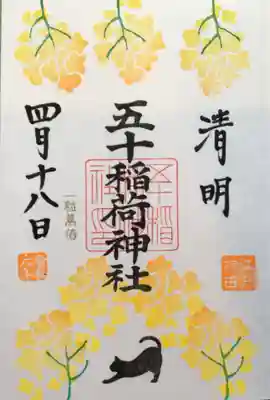 清明
五十稲荷神社
四月十八日
一粒萬倍